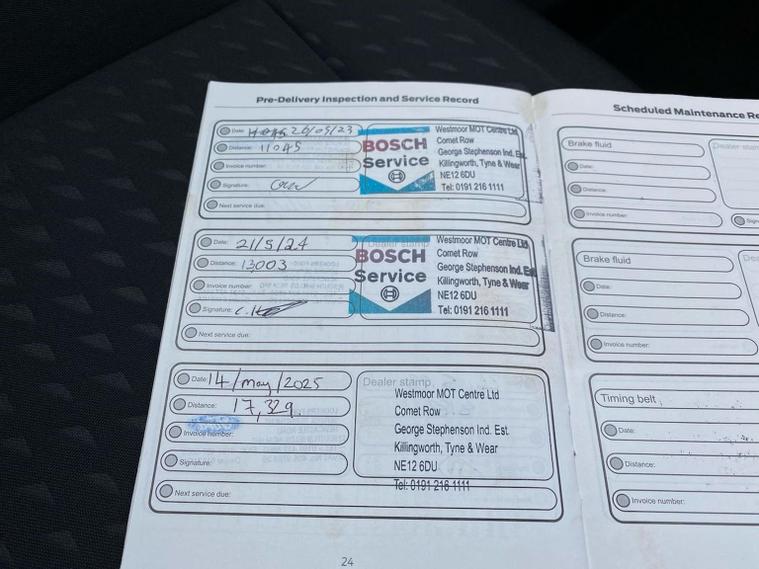 Pre-Delivery Inspection and Service Record
Date: 26/05/23
Distance: 11045
Invoice number:
Signature:
Next service due:
BOSCH
Service
Westmoor MOT Centre Ltd
Comet Row
George Stephenson Ind. Est.
Killingworth, Tyne & Wear
NE12 6DU
Tel: 0191 216 1111
Date: 21/5/24
Distance: 13003
Invoice number:
Signature:
Next service due:
Dealer stamp
BOSCH
Service
Westmoor MOT Centre Ltd
Comet Row
George Stephenson Ind. Est
Killingworth, Tyne & Wear
NE12 6DU
Tel: 0191 216 1111
Date: 14/may/2025
Distance: 17,329
Invoice number:
Signature:
Next service due:
Dealer stamp
Westmoor MOT Centre Ltd
Comet Row
George Stephenson Ind. Est.
Killingworth, Tyne & Wear
NE12 6DU
Tel: 0191 216 1111
24
Scheduled Maintenance Re
Brake fluid
Date:
Distance:
Invoice number:
Dealer stam
Sign
Brake fluid
Date:
Distance:
Invoice number:
Dea
Timing belt
Date:
Distance:
Invoice number: